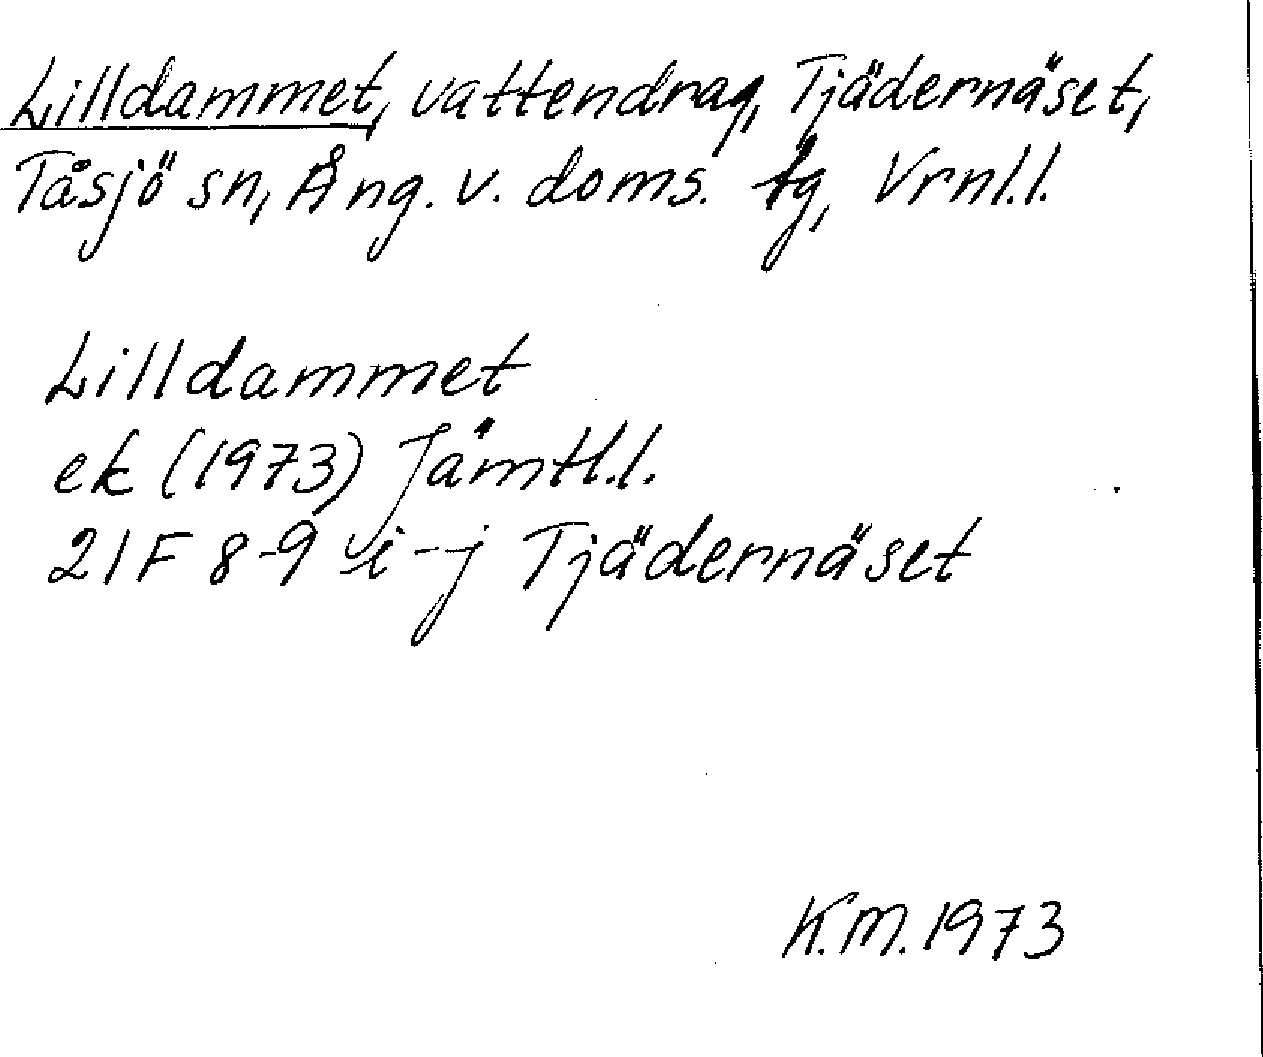 Lilldammet, vattendrag, Tjädernäset,
Tåsjö sn, Ång. v. doms. tg, Vrnl.l.
Lilldammet
ek (1973) Jämtl.l.
21F 8-9 i-j Tjädernäset
K.M. 1973